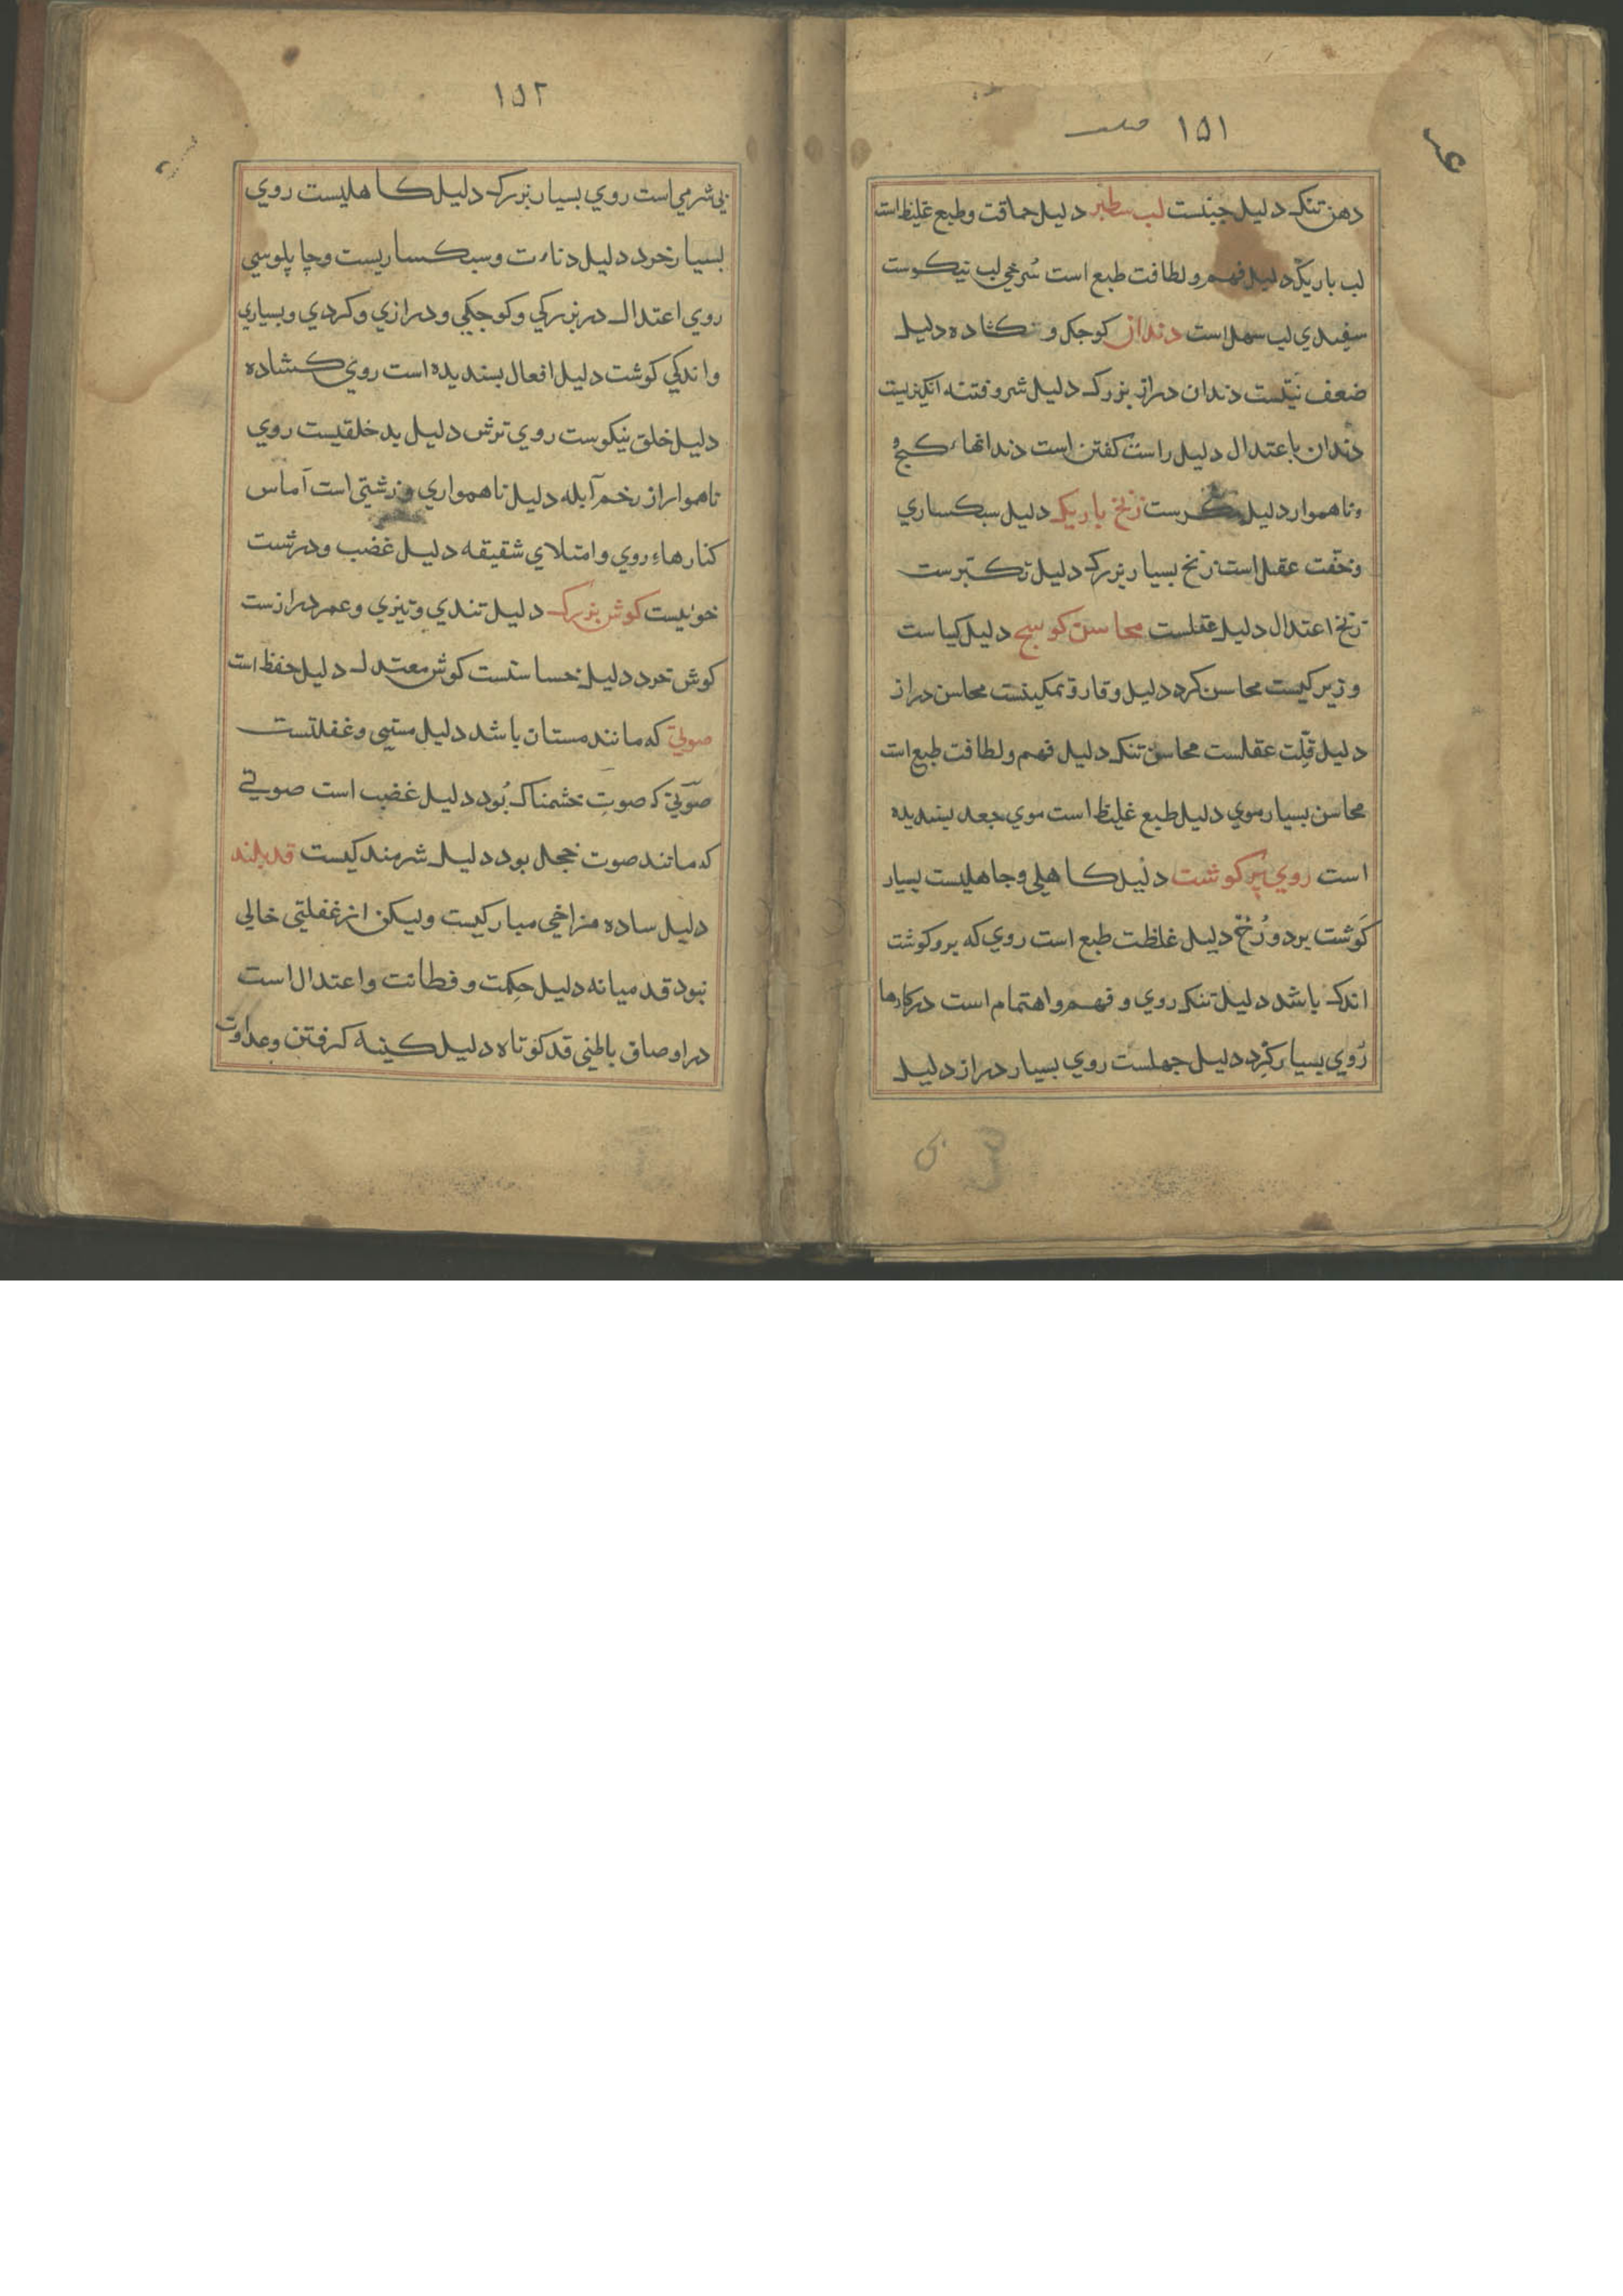 ١٥١
دهن تنک دلیل جبنست لب سطبر دلیل حماقت وطبع غلیظ است
لب باریک دلیل فهم ولطافت طبع است سُرخی لب نیکوست
سفیدي لب سهل است دندان کوچک و کشاده دلیل
ضعف دندان دراز بزرک دلیل شر وفتنه انکیزیست
دندان باعتدال دلیل راست کفتن است دندانهاء کج
وناهموار دلیل مکرست زنخ باریک دلیل سبکساري
وخفّت عقل است زنخ بسیار بزرک دلیل تکبّرست
زنخ اعتدال دلیل عقلست محاسن کوسج دلیل کیاست
وزیرکیست محاسن کرد دلیل وقار وتمکینست محاسن دراز
دلیل قلّت عقلست محاسن تنک دلیل فهم ولطافت طبع است
محاسن بسیار موي دلیل طبع غلیظ است موي جعد بسندیده
است روي پر کوشت دلیل کاهلی وجاهلیست بسیار
کوشت بر دو رُخ دلیل غلظت طبع است روي که برو کوشت
اندک باشد دلیل تنک روي وفهم واهتمام است درکارها
رُوي بسیار کِرد دلیل جهلست روي بسیار دراز دلیل
١٥٢
بی شرمی است روي بسیار بزرک دلیل کاهلیست روي
بسیار خرد دلیل دناءت وسبکساریست وچاپلوسي
روي اعتدال در بزرکي وکوجکی ودرازي وکردي وبسیاري
واندکي کوشت دلیل افعال بسندیده است روي کشاده
دلیل خلق نیکوست روي ترش دلیل بد خلقیست روي
ناهموار از زخم آبله دلیل ناهمواري وزشتی است آماس
کنارهاءِ روي وامتلاي شقیقه دلیل غضب ودرشت
خوئیست کوش بزرک دلیل تندي وتیزي وعمر درازست
کوش خرد دلیل خساستست کوش معتدل دلیل حفظ است
صوتی که مانند مستان باشد دلیل مستیی وغفلتست
صوتی که صوتِ خشمناک بُود دلیل غضب است صوتی
که مانند صوت خجل بود دلیل شرمندکیست قد بلند
دلیل ساده مزاخی مبارکیست ولیکن از غفلتی خالی
نبود قد میانه دلیل حِکمت وفطانت واعتدال است
در اوصاف باطنی قد کوتاه دلیل کینه کرفتن وعداوت